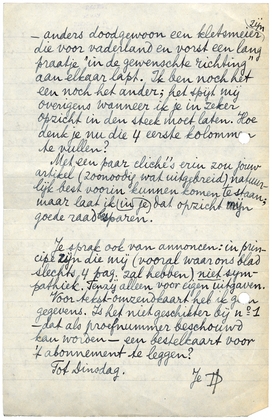 zijn,
– anders doodgewoon een kletsmeier,
die voor vaderland en vorst een lang
praatje "in de gewenschte richting"
aan elkaar lapt. Ik ben noch het
een noch het ander; het spijt mij
overigens wanneer ik je in zeker
opzicht in den steek moet laten. Hoe
denk je nu die 4 eerste kolommen
te vullen?
Met een paar cliché's erin zou jouw
artikel (zoonoodig wat uitgebreid) natuur-
lijk best voorin kunnen komen te staan;
maar laat ik (in je) dat opzicht mijn
goede raad sparen.
Je sprak ook van annoncen: in prin-
cipe zijn die mij (vooral waar ons blad
slechts 4 pag. zal hebben) niet sym-
pathiek. Tenzij alleen voor eigen uitgaven.
Voor tekst-omzendkaart heb ik geen
gegevens. Is het niet geschikter bij no 1
– dat als proefnummer beschouwd
kan worden – een bestelkaart voor
't abonnement te leggen?
Tot Dinsdag.
Je